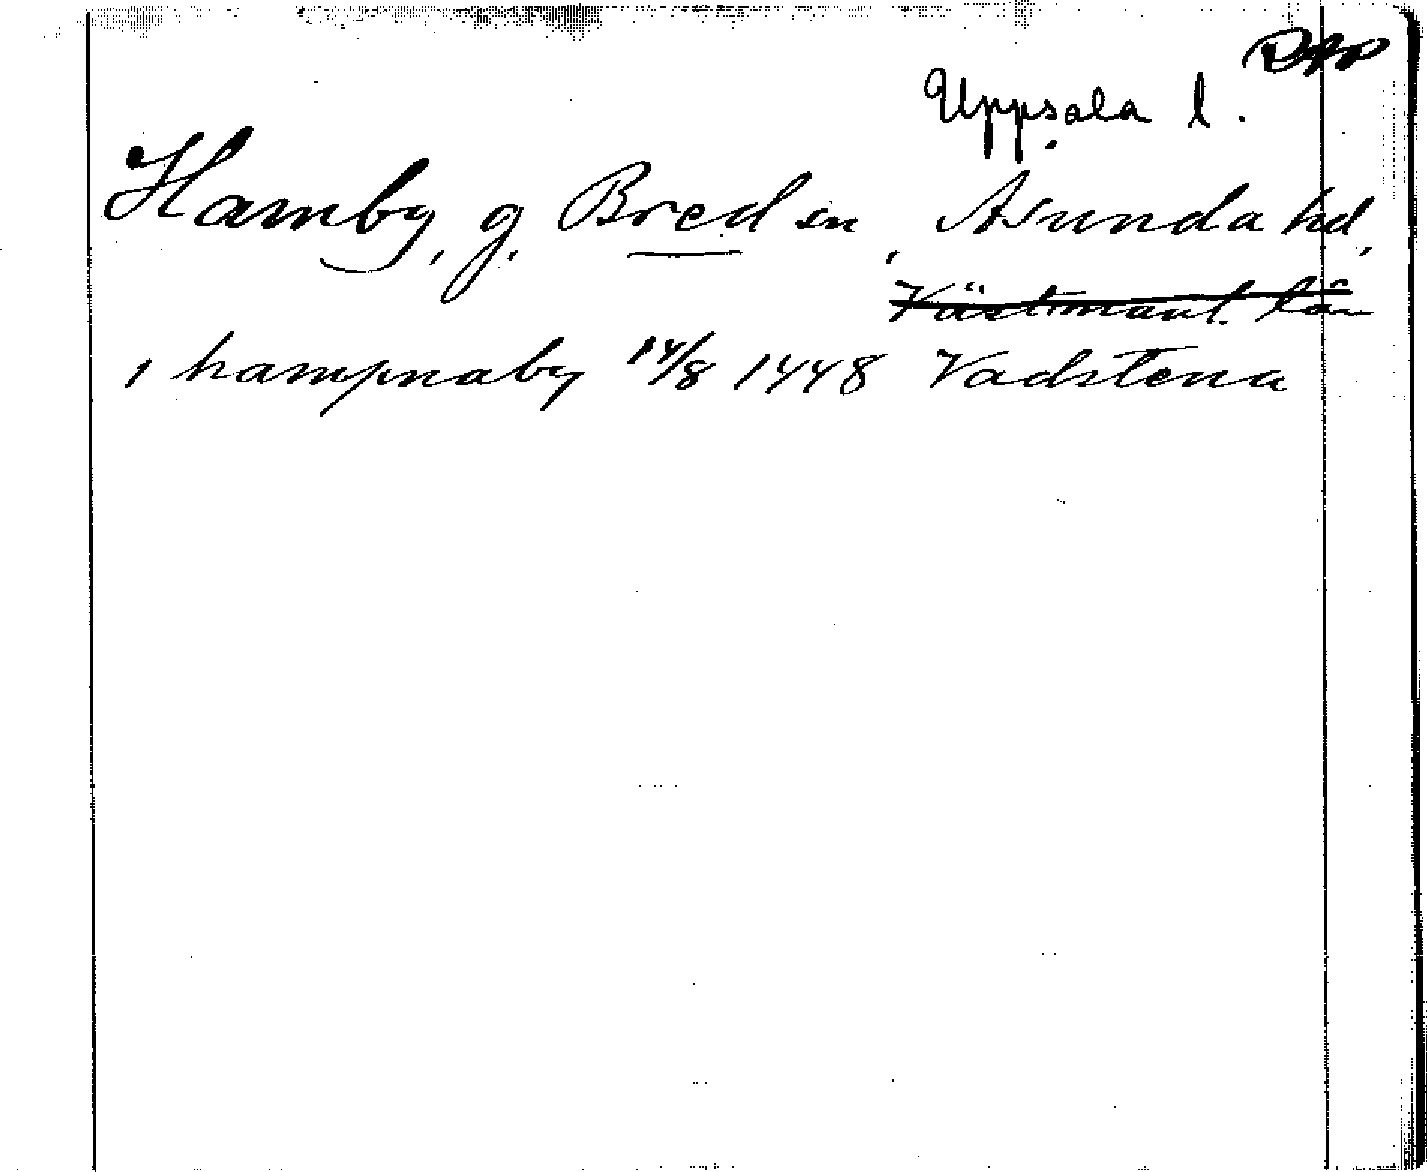 Uppsala l.
Hamby, g. Bred sn, Åsunda hd,
Västmanl. län
i hampnaby 14/8 1448 Vadstena